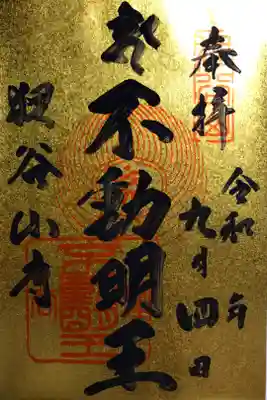 奉拝
令和 年
九月四日
不動明王
狸谷山寺